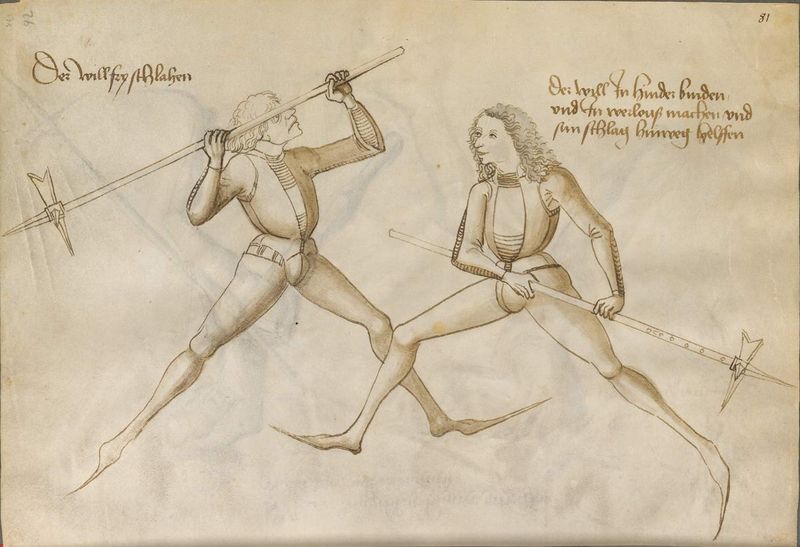 92
81
Der will fry schlahen
Der will In hinder binden
und In werlouß machen und
sin schlag hinweg helffen